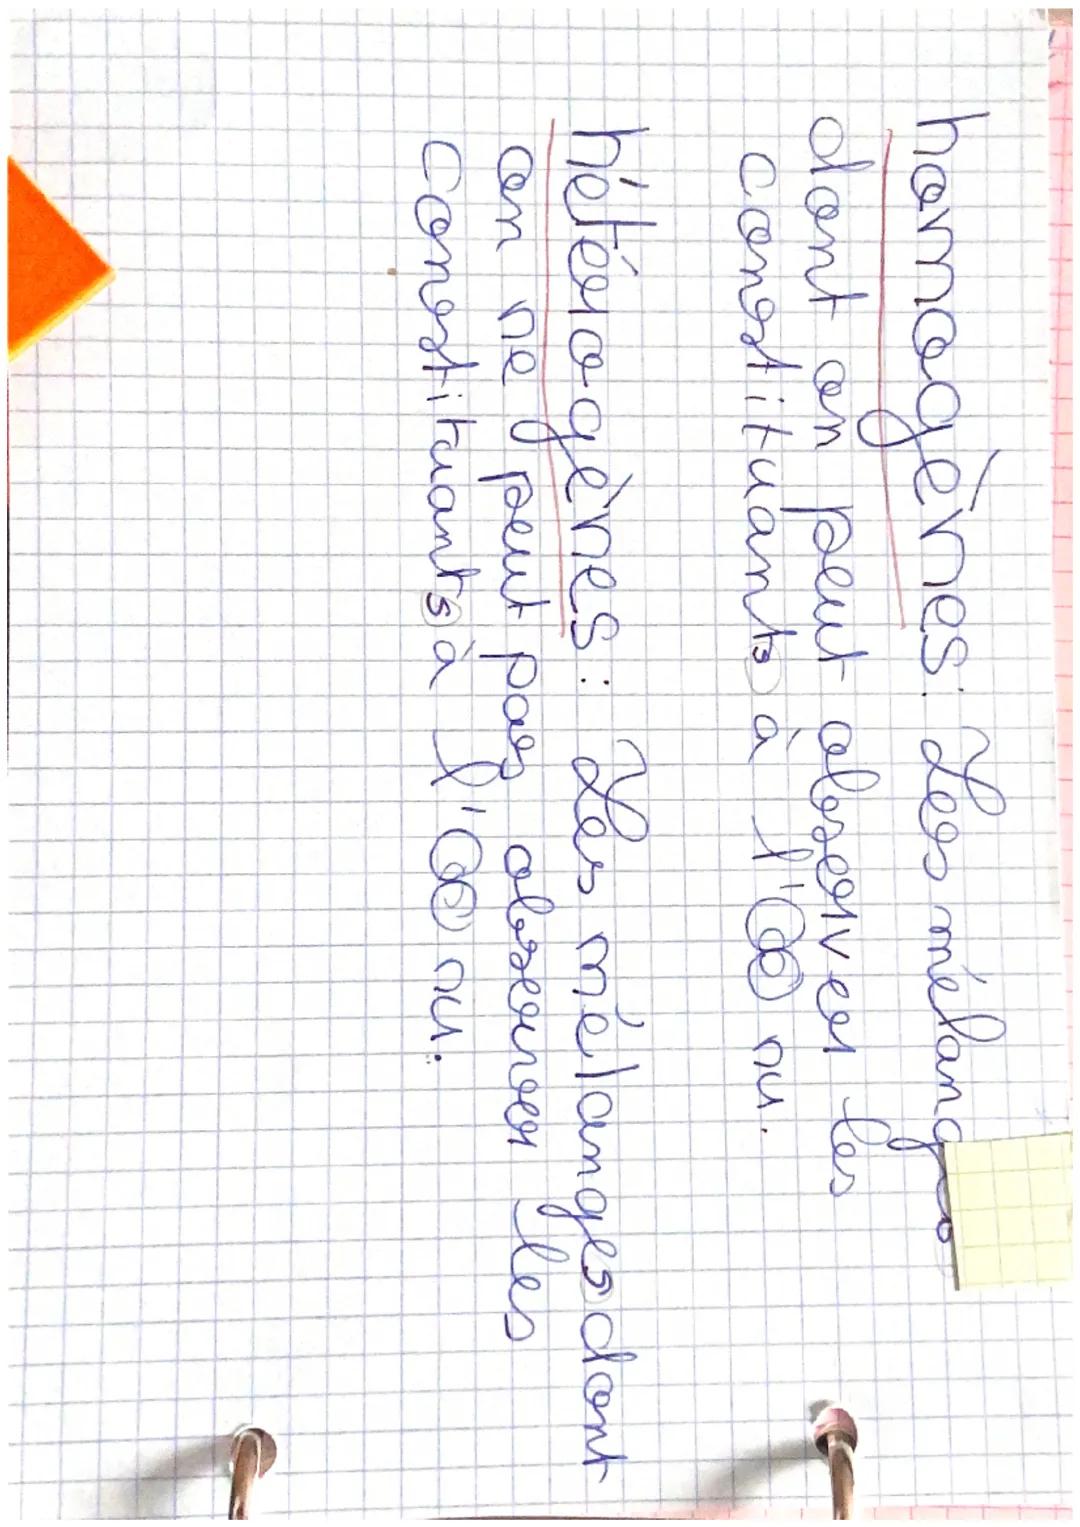 homogènes: Les mélanges
dont on peut observer les
constituants à l'œ nu.
hétérogènes: Les mélanges dont
on ne peut pas observer les
constituants à l'œ nu.